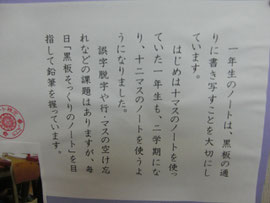 一年生のノートは、黒板の通
りに書き写すことを大切にし
ています。
はじめは十マスのノートを使っ
ていた一年生も、二学期にな
り、十二マスのノートを使うよ
うになりました。
誤字脱字や行・マスの空け忘
れなどの課題はありますが、毎
日「黒板そっくりのノート」を目
指して鉛筆を握っています。